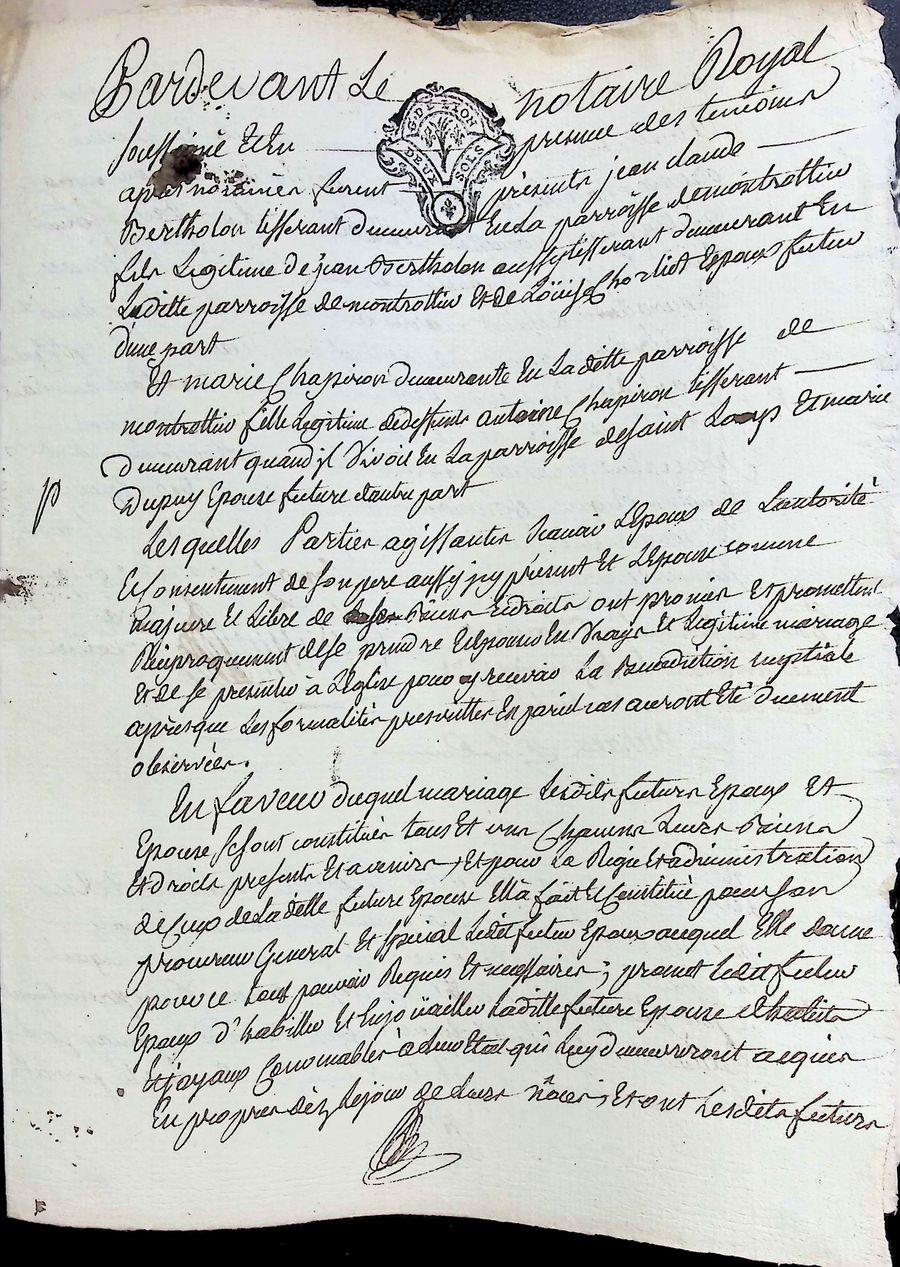 Pardevant Le notaire Royal
G. DE LYON
DEUX SOLS
soussigné et En presence des temoins
apres nommés furent présents jean claude
Bertholon tisserant demeurant En La parroisse de montrottier
fils Legitime de jean Bertholon aussy tisserant demeurant En
Laditte parroisse de montrottier et de Loüise Chorliot Epoux futur
d'une part
Et marie Chapiron demeurante En La ditte parroisse de
montrottier fille Legitime de deffunt antoine Chapiron tisserant
demeurant quand jl vivoit En La parroisse de saint Loup Et marie
Dupuy Epouse future d'autre part
Lesquelles Parties agissantes sçavoir L'Epoux de L'autorité
Et Consentement de son pere aussy jcy présent Et L'Epouse comme
majeure Et Libre de ses Biens et droits ont promis Et promettent
Réciproquement de se prendre et Epouser En Vraye Et Légitime mariage
et de se presenter à L'Eglise pour y recevoir La Benediction nuptiale
après que Les formalités prescrittes En pareil cas auront Eté duement
observées.
En faveur duquel mariage Lesdits futurs Epoux Et
Epouse se sont constitués tous Et uns Chacuns Leurs Biens
Et droits presents Et avenirs, Et pour La Regie Et administration
de Ceux de La ditte future Epouse Ell'a fait Et Constitué pour son
procureur General Et special Ledit futur Epoux auquel Elle donne
pour ce tous pouvoir Requis Et necessaires; promet Ledit futur
Epoux d'habiller Et Enjoüailler Laditte future Epouse d'habits
Et joyaux Convenables à Leur Etat qui Luy demeureront acquis
En propres dèz Lejour de Leurs nôces, Et ont Lesdits futurs